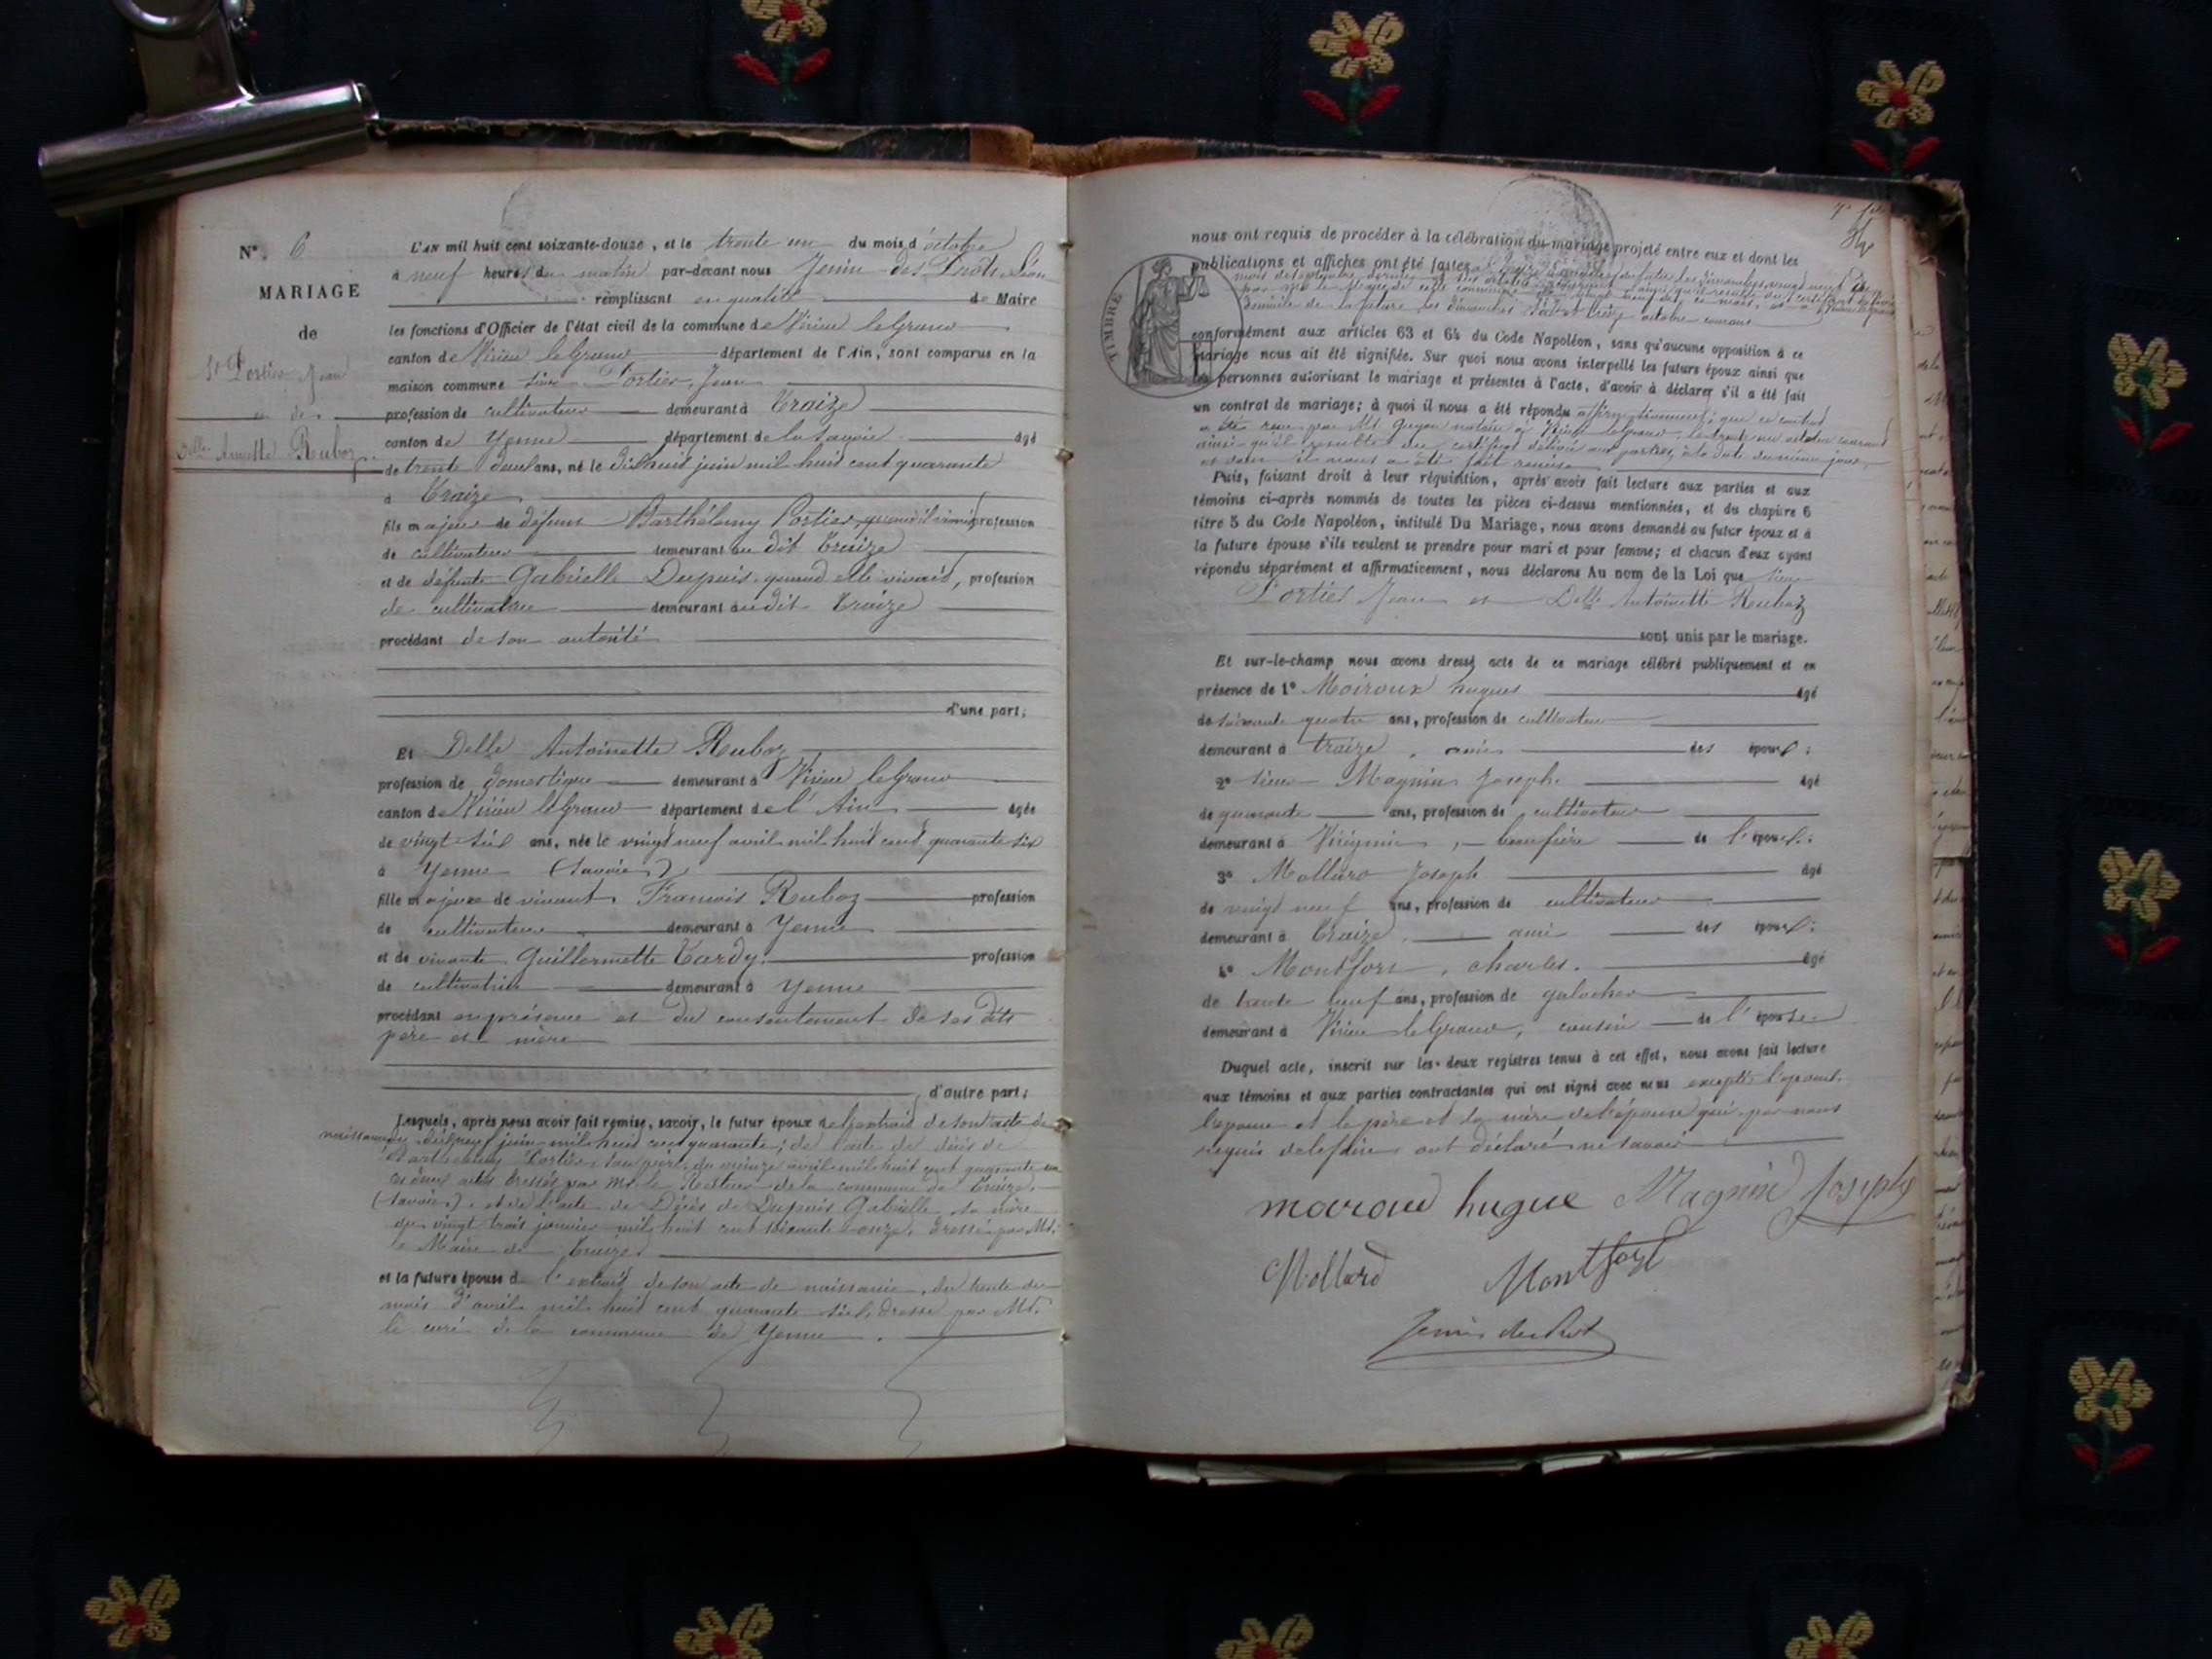 N°. 6
MARIAGE
de
Sr Portier Jean
et de
Delle Annette Ruboz
L'AN mil huit cent soixante-douze, et le trente un du mois d'octobre
à neuf heures du matin par-devant nous Jenin des Prots Léon
remplissant en qualité de Maire
les fonctions d'Officier de l'état civil de la commune de Virieu le Grand
canton de Virieu le Grand département de l'Ain, sont comparus en la
maison commune sieur Portier, Jean
profession de cultivateur demeurant à Traize
canton de Yenne département de la Savoie âgé
de trente deux ans, né le dix huit juin mil huit cent quarante
à Traize
fils majeur de défunt Barthélemy Portier, quand il vivait profession
de cultivateur demeurant au dit Traize
et de défunte Gabrielle Dupuis quand elle vivait, profession
de cultivatrice demeurant audit Traize
procédant de son autorité
d'une part;
Et Delle Antoinette Ruboz
profession de domestique demeurant à Virieu le Grand
canton de Virieu le Grand département de l'Ain âgée
de vingt six ans, née le vingt neuf avril mil huit cent quarante six
à Yenne (Savoie)
fille majeure de vivant François Ruboz profession
de cultivateur demeurant à Yenne
et de vivante Guillermette Tardy profession
de cultivatrice demeurant à Yenne
procédant en présence et du consentement de ses dits
père et mère
d'autre part;
Lesquels, après nous avoir fait remise, savoir, le futur époux de l'extrait de son acte de
naissance du juin mil huit cent quarante; de l'acte de décès de
Barthélemy Portier, son père, du quinze avril mil huit cent quarante un
ces deux actes dressés par Mr le Recteur de la commune de Traize
(Savoie), et de l'acte de Décès de Dupuis Gabrielle sa mère
du vingt trois janvier mil huit cent soixante onze, dressé par Mr.
le Maire de Traize
et la future épouse de l'extrait de son acte de naissance, du trente du
mois d'avril mil huit cent quarante six, dressé par Mr.
le curé de la commune de Yenne.
nous ont requis de procéder à la célébration du mariage projeté entre eux et dont les
publications et affiches ont été faites à Traize
domicile de la future, les dimanches six et treize octobre courant
TIMBRE
conformément aux articles 63 et 64 du Code Napoléon, sans qu'aucune opposition à ce
mariage nous ait été signifiée. Sur quoi nous avons interpellé les futurs époux ainsi que
les personnes autorisant le mariage et présentes à l'acte, d'avoir à déclarer s'il a été fait
un contrat de mariage; à quoi il nous a été répondu affirmativement; que ce contrat
a été reçu par Mr Guyon notaire à Virieu le Grand, le trente un octobre courant
ainsi qu'il résulte du certificat délivré aux parties, à la date du même jour,
et dont il nous a été fait remise
Puis, faisant droit à leur réquisition, après avoir fait lecture aux parties et aux
témoins ci-après nommés de toutes les pièces ci-dessus mentionnées, et du chapitre 6
titre 5 du Code Napoléon, intitulé Du Mariage, nous avons demandé au futur époux et à
la future épouse s'ils veulent se prendre pour mari et pour femme; et chacun d'eux ayant
répondu séparément et affirmativement, nous déclarons Au nom de la Loi que sieur
Portier Jean et Delle Antoinette Ruboz
sont unis par le mariage.
Et sur-le-champ nous avons dressé acte de ce mariage célébré publiquement et en
présence de 1° Moiroux hugues âgé
de soixante quatre ans, profession de cultivateur
demeurant à traize, amis des époux;
2° sieur Magnin Joseph âgé
de quarante ans, profession de cultivateur
demeurant à Virignin, beaufrère de l'époux;
3° Mollard Joseph âgé
de vingt neuf ans, profession de cultivateur
demeurant à Traize, ami des époux;
4° Montfort, charles. âgé
de trente neuf ans, profession de galocher
demeurant à Virieu le Grand, cousin de l'épouse
Duquel acte, inscrit sur les deux registres tenus à cet effet, nous avons fait lecture
aux témoins et aux parties contractantes qui ont signé avec nous exceptés l'époux
l'épouse et le père et la mère de l'épouse qui par nous
requis de le faire ont déclaré ne savoir
maroud hugue Magnin Joseph
Mollard Montfort
Jenin des Prot